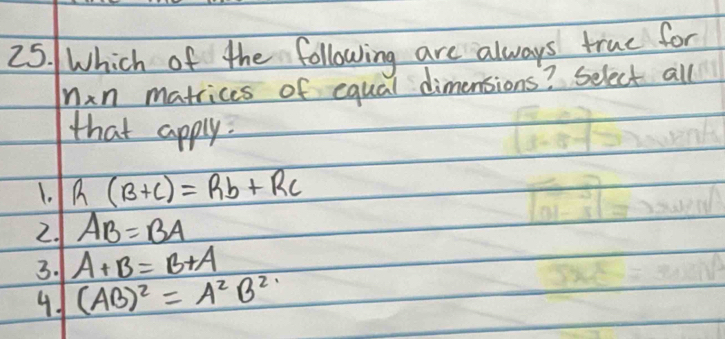 25. Which of the following are always true for
nxn matrices of equal dimensions? Select all
that apply:
1. R (B+C) = Rb + Rc
2. AB = BA
3. A + B = B + A
4. (AB)² = A² B².